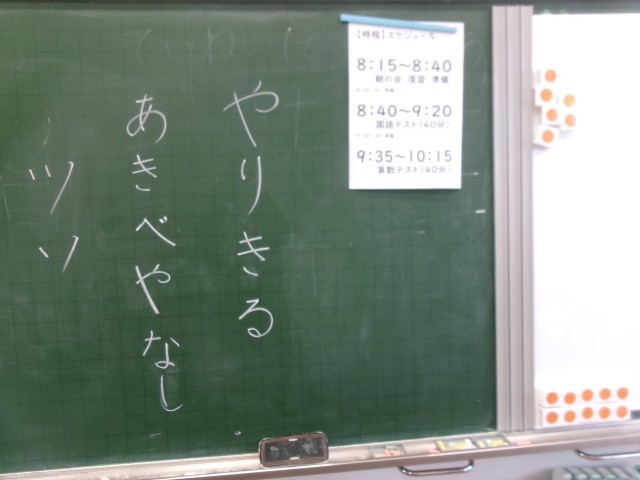 やりきる
あきべやなし
ツソ
【時程】スケジュール
8:15～8:40
朝の会 復習 準備
8:40～9:20
国語テスト(40分)
9:35～10:15
算数テスト(40分)